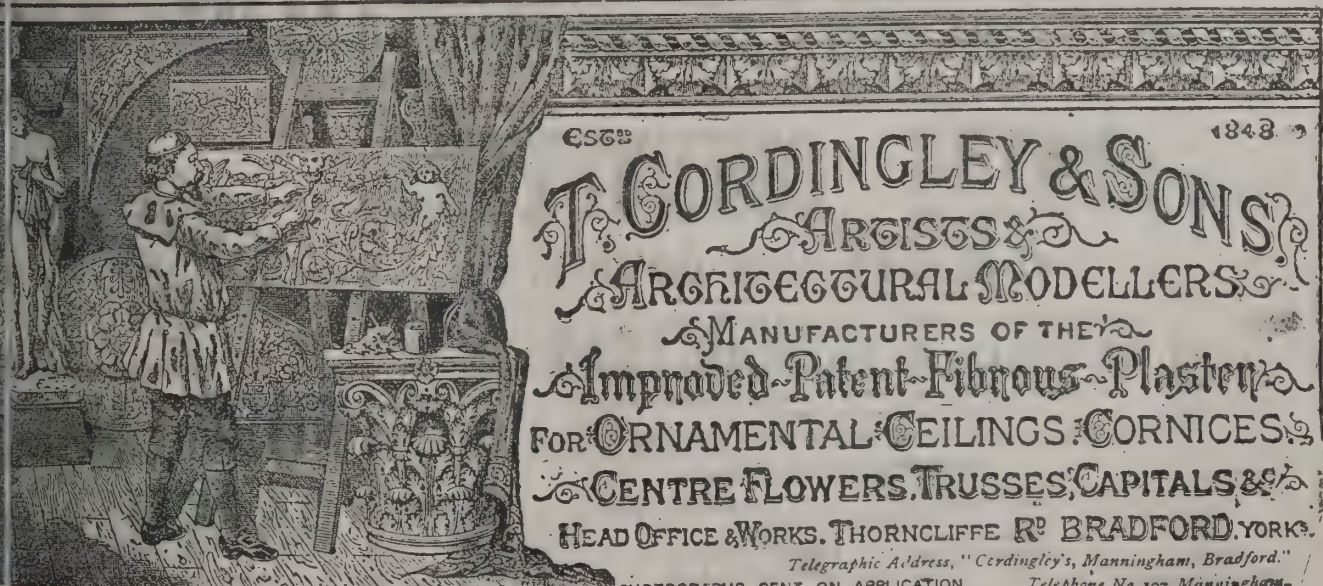 ESTBD 1848
T. CORDINGLEY & SONS,
ARTISTS &
ARCHITECTURAL MODELLERS
MANUFACTURERS OF THE
Improved Patent Fibrous Plaster
FOR ORNAMENTAL CEILINGS, CORNICES,
CENTRE FLOWERS, TRUSSES, CAPITALS, &c.
HEAD OFFICE & WORKS. THORNCLIFFE RD BRADFORD. YORKS.
Telegraphic Address, "Cordingley's, Manningham, Bradford."
PHOTOGRAPHS SENT ON APPLICATION. Telephone No. Manningham.